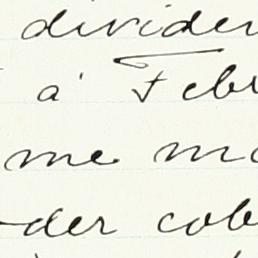 divider
á Febr
me ma
der cob